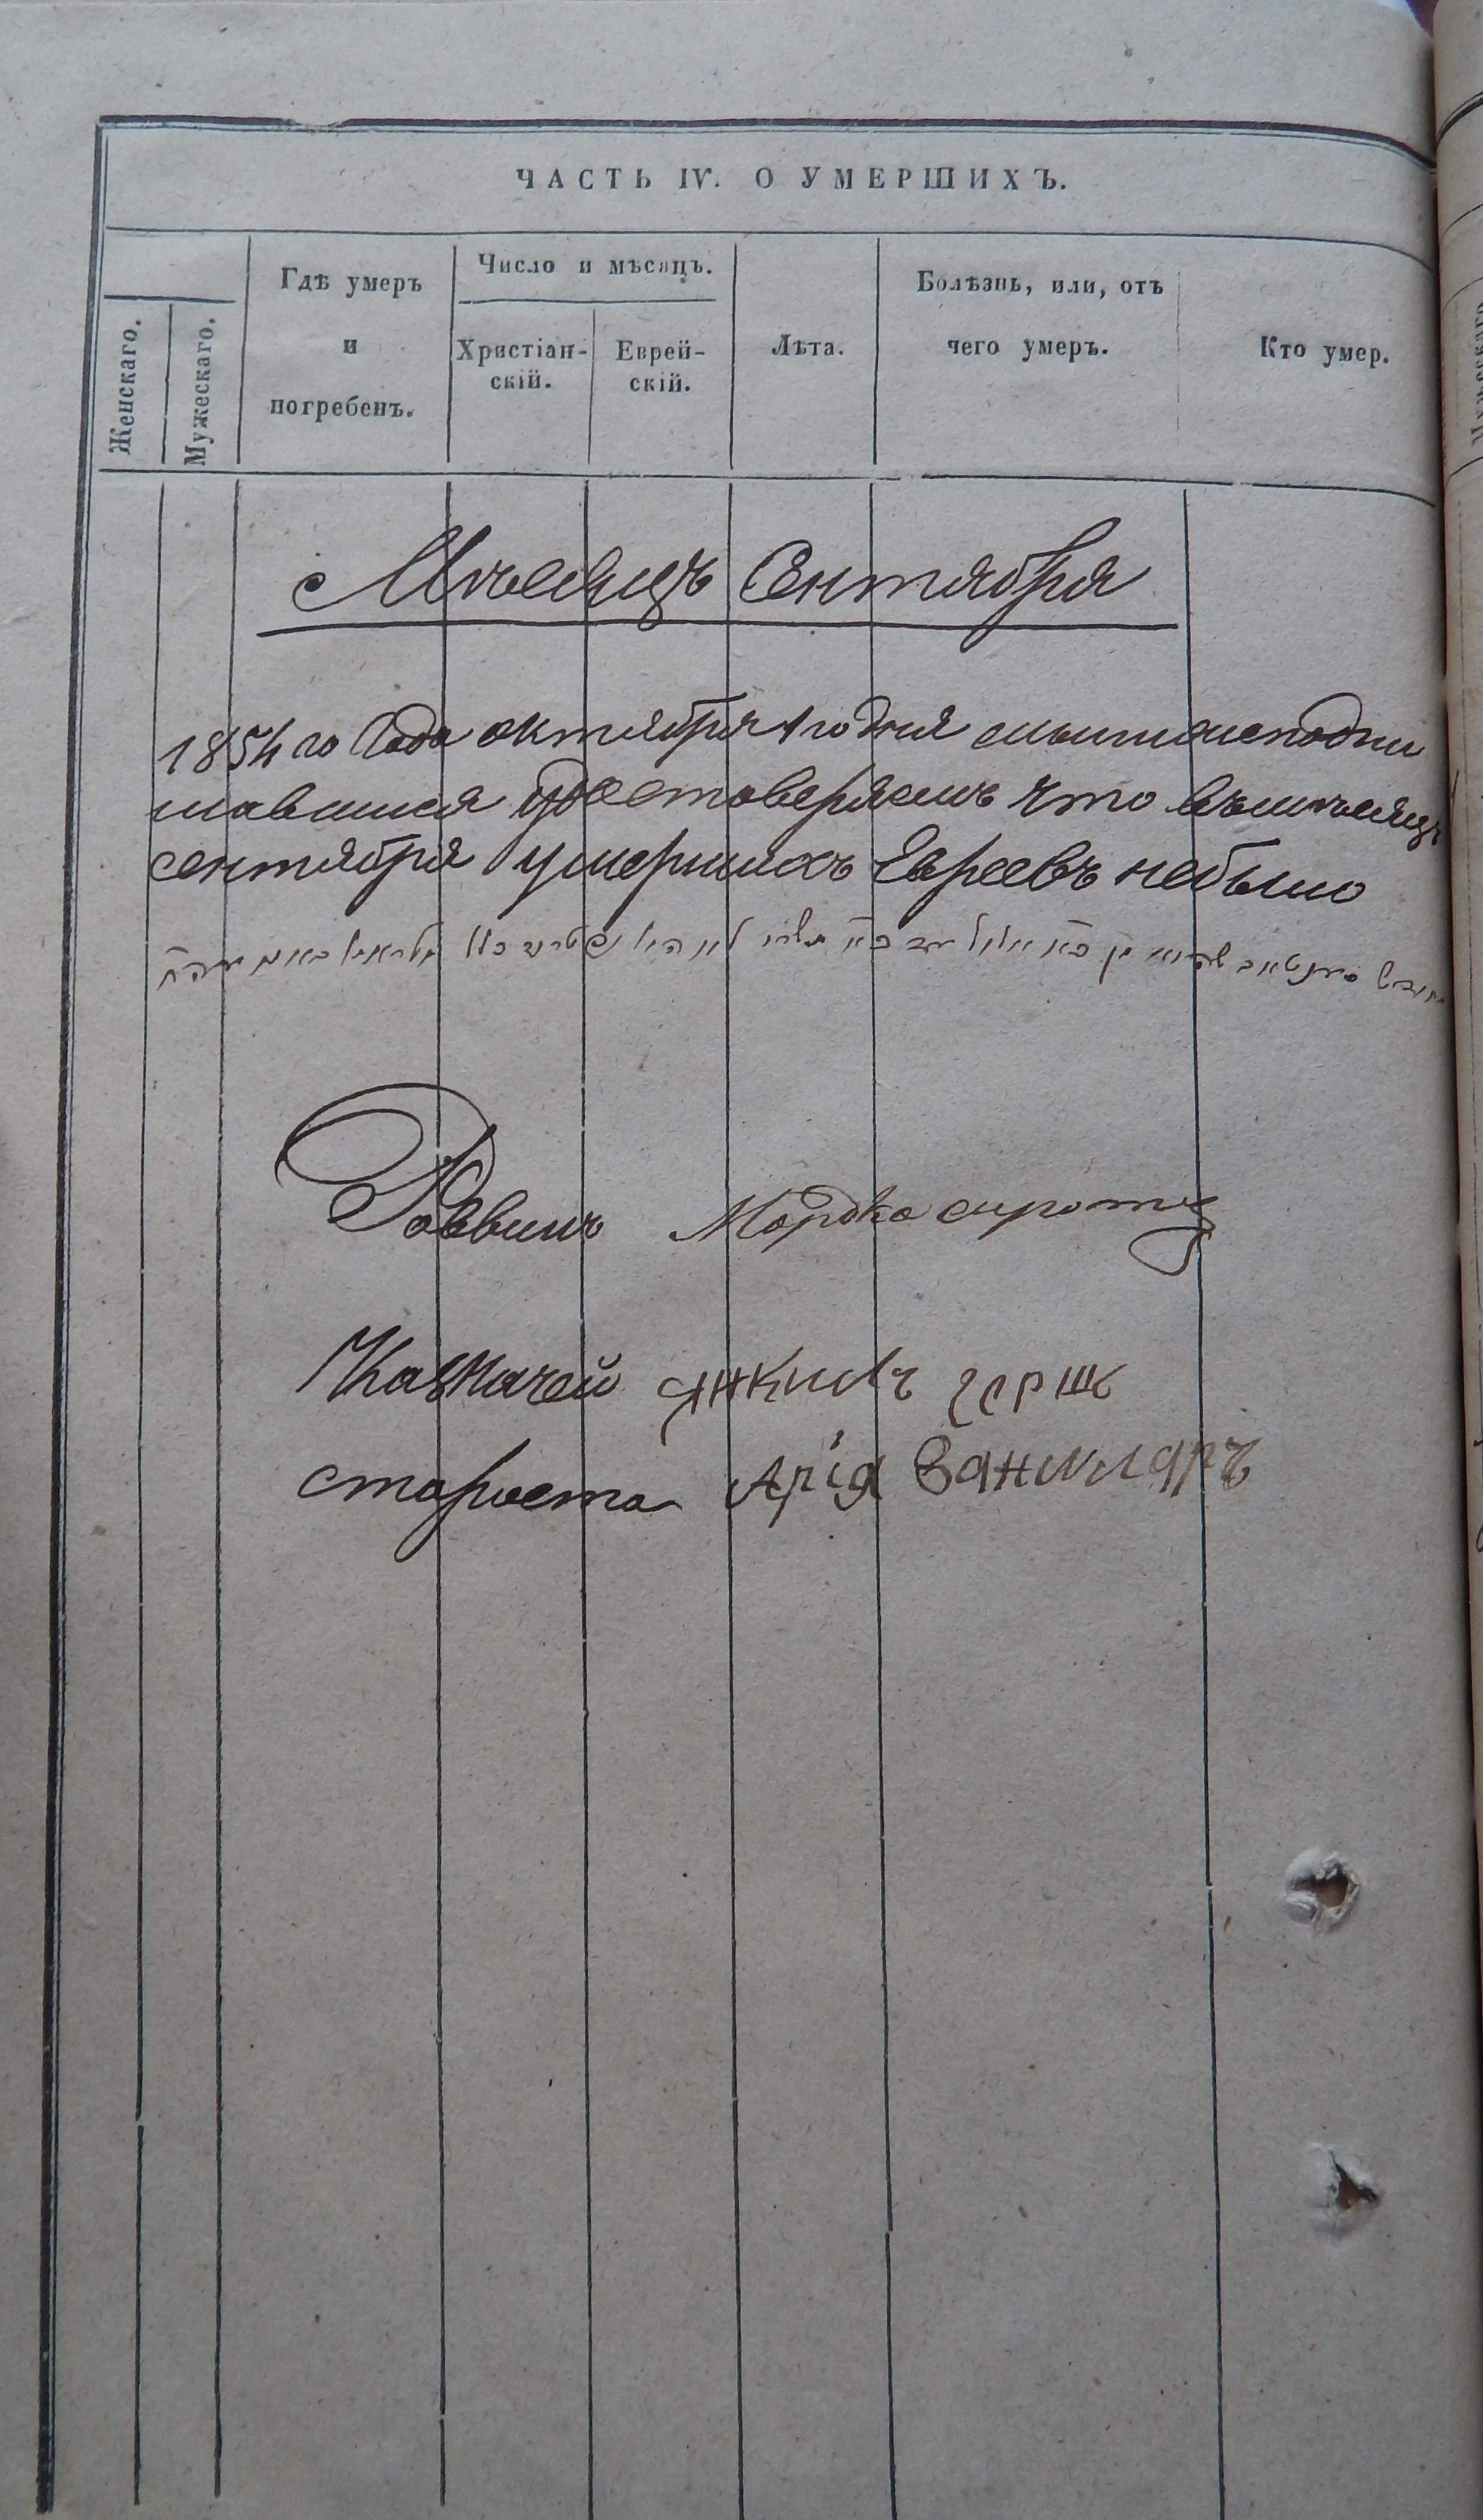 ЧАСТЬ IV. О УМЕРШИХЪ.
Женскаго.
Мужескаго.
Гдѣ умеръ
и
погребенъ.
Число и мѣсяцъ.
Христіан-
скій.
Еврей-
скій.
Лѣта.
Болѣзнь, или, отъ
чего умеръ.
Кто умер.
Мѣсяцъ Сентября
1854 го Года октября 1 го дня мы нижеподпи
савшися удостоверяемъ что въ мѣсяцъ
сентября умершихъ Евреевъ небыло
Раввинъ Мордко сирота
Казначей Янкилъ герш
староста Арія